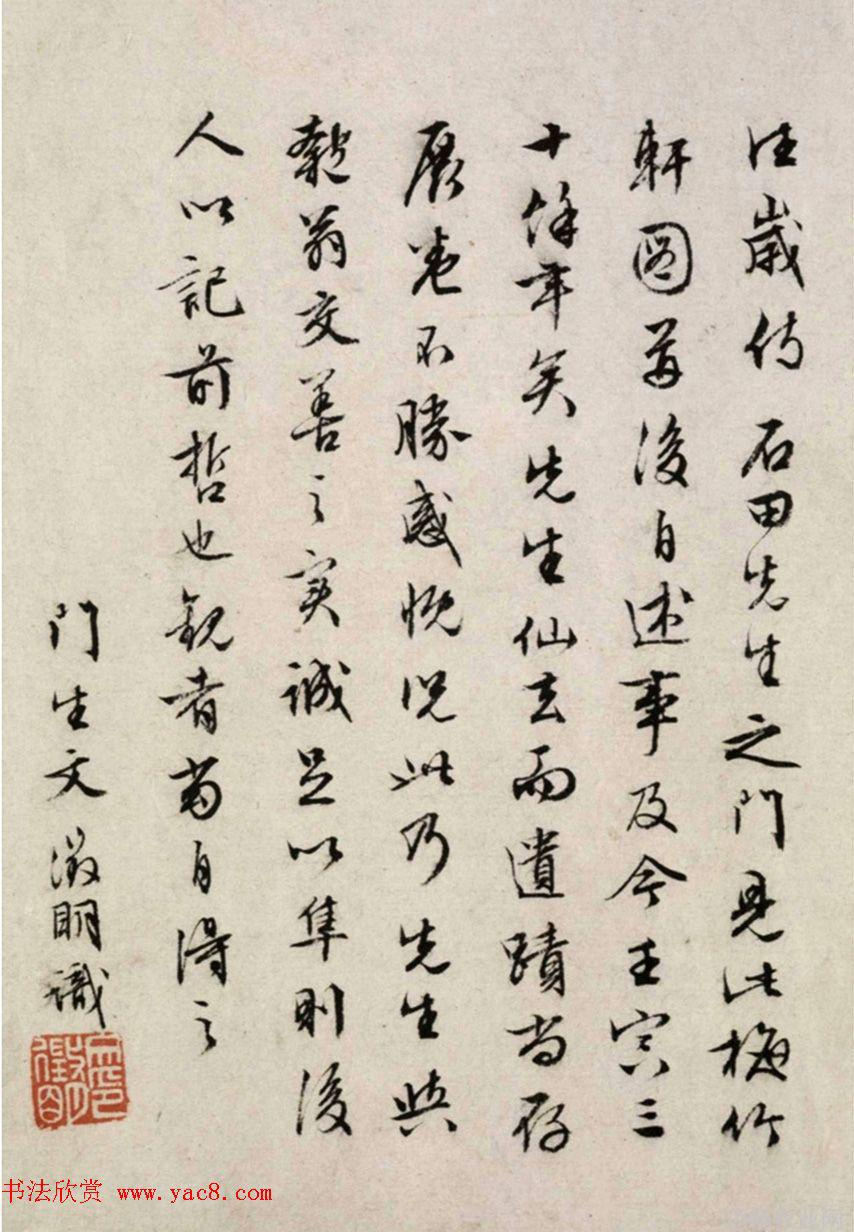 往歲侍 石田先生之門見此梅竹
軒圖後自述事及今壬寅三
十餘年矣先生仙去而遺蹟尚存
展卷不勝感慨況此乃先生與
匏翁交善之實誠足以準則後
人以記前哲也觀者當自得之
門生文徵明識
书法欣赏 www.yac8.com